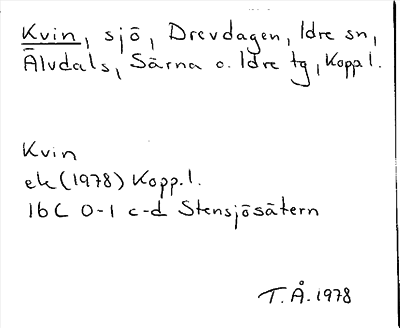 Kvin, sjö, Drevdagen, Idre sn,
Älvdals, Särna o. Idre tg, Kopp.l.
Kvin
ek (1978) Kopp.l.
16C 0-1 c-d Stensjösätern
T.Å. 1978